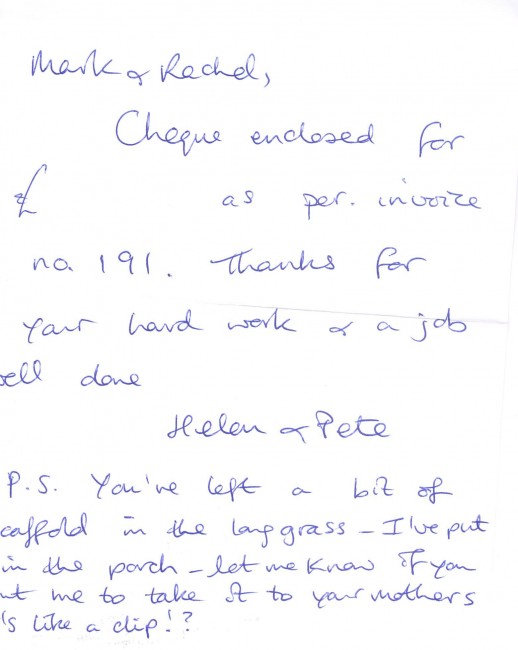 Mark & Rachel,
Cheque enclosed for
£ as per. invoice
no. 191. Thanks for
your hard work & a job
ell done
Helen & Pete
P.S. You've left a bit of
caffold in the long grass - I've put
in the porch - let me know if you
nt me to take it to your mothers
's like a clip!?